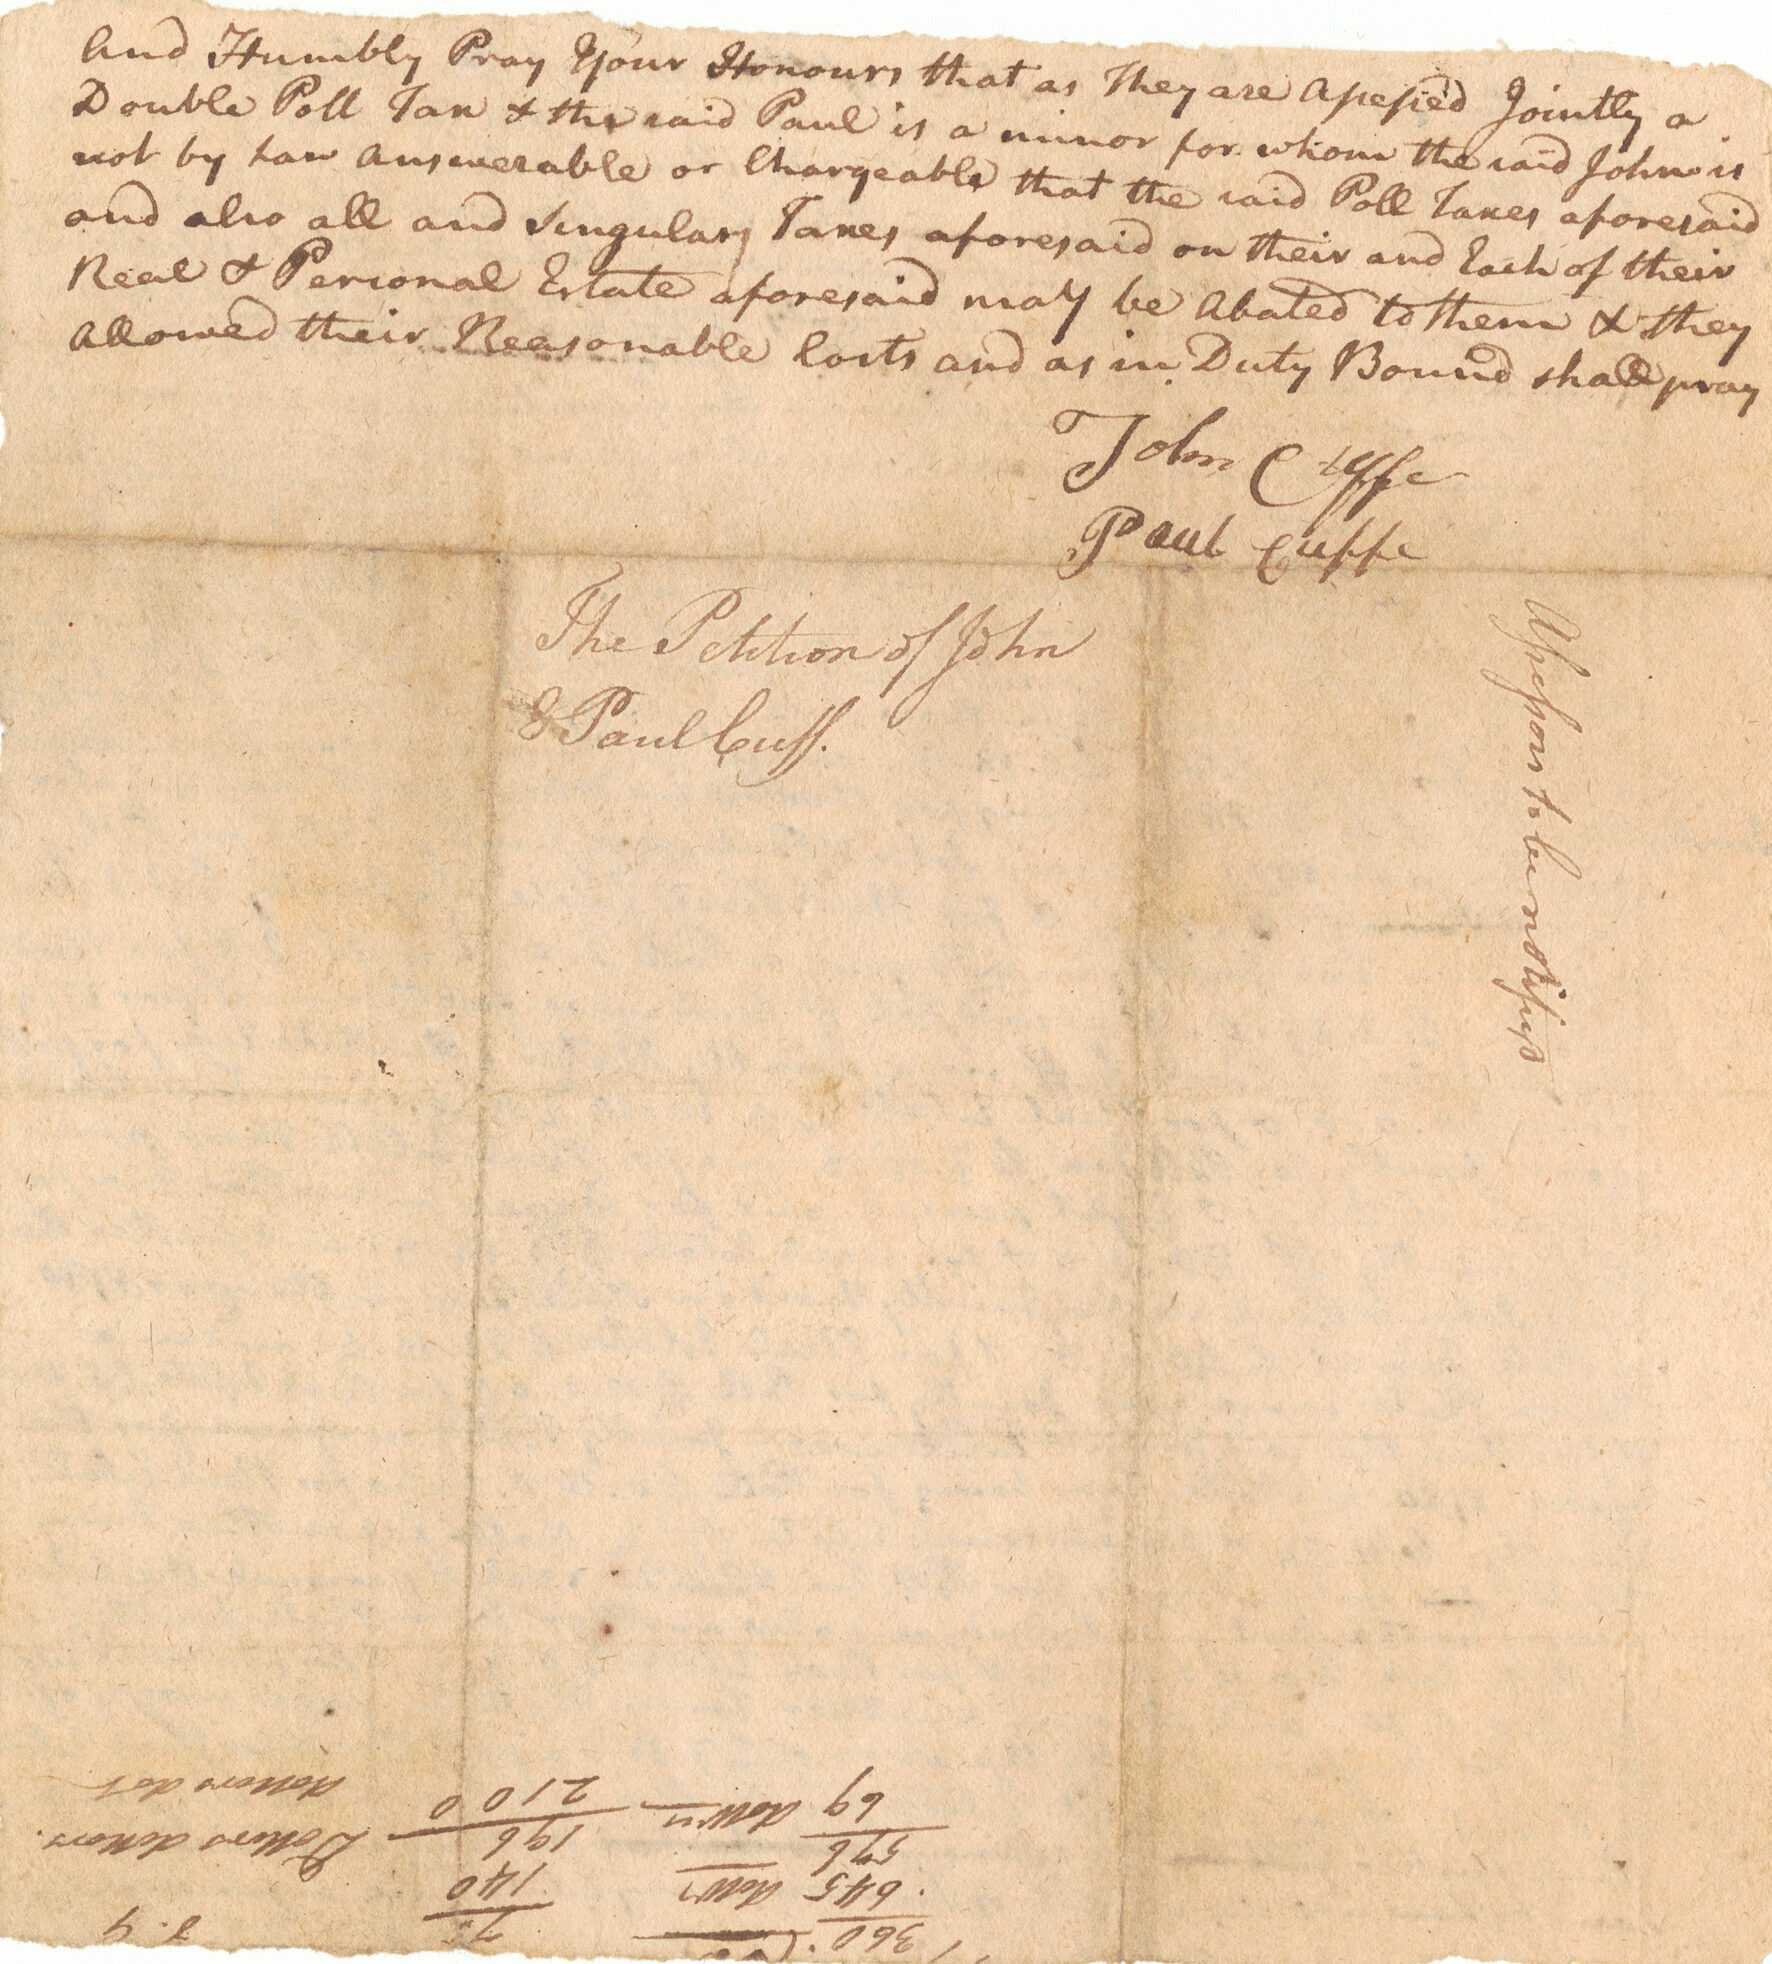 And Humbly Pray Your Honours that as They are Assessed Jointly a
Double Poll Tax & the said Paul is a minor for whom the said John is
not by Law Answerable or Chargeable that the said Poll Taxes aforesaid
and also all and Singulary Taxes aforesaid on their and Each of their
Real & Personal Estate aforesaid may be Abated to them & they
allowed their Reasonable Costs and as in Duty Bound shall pray
John Cuffe
Paul Cuffe
The Petition of John
& Paul Cuff.
Assessors to be notifyd
360
645
576
69
140
196
2100
Dollers dollers.
dollers